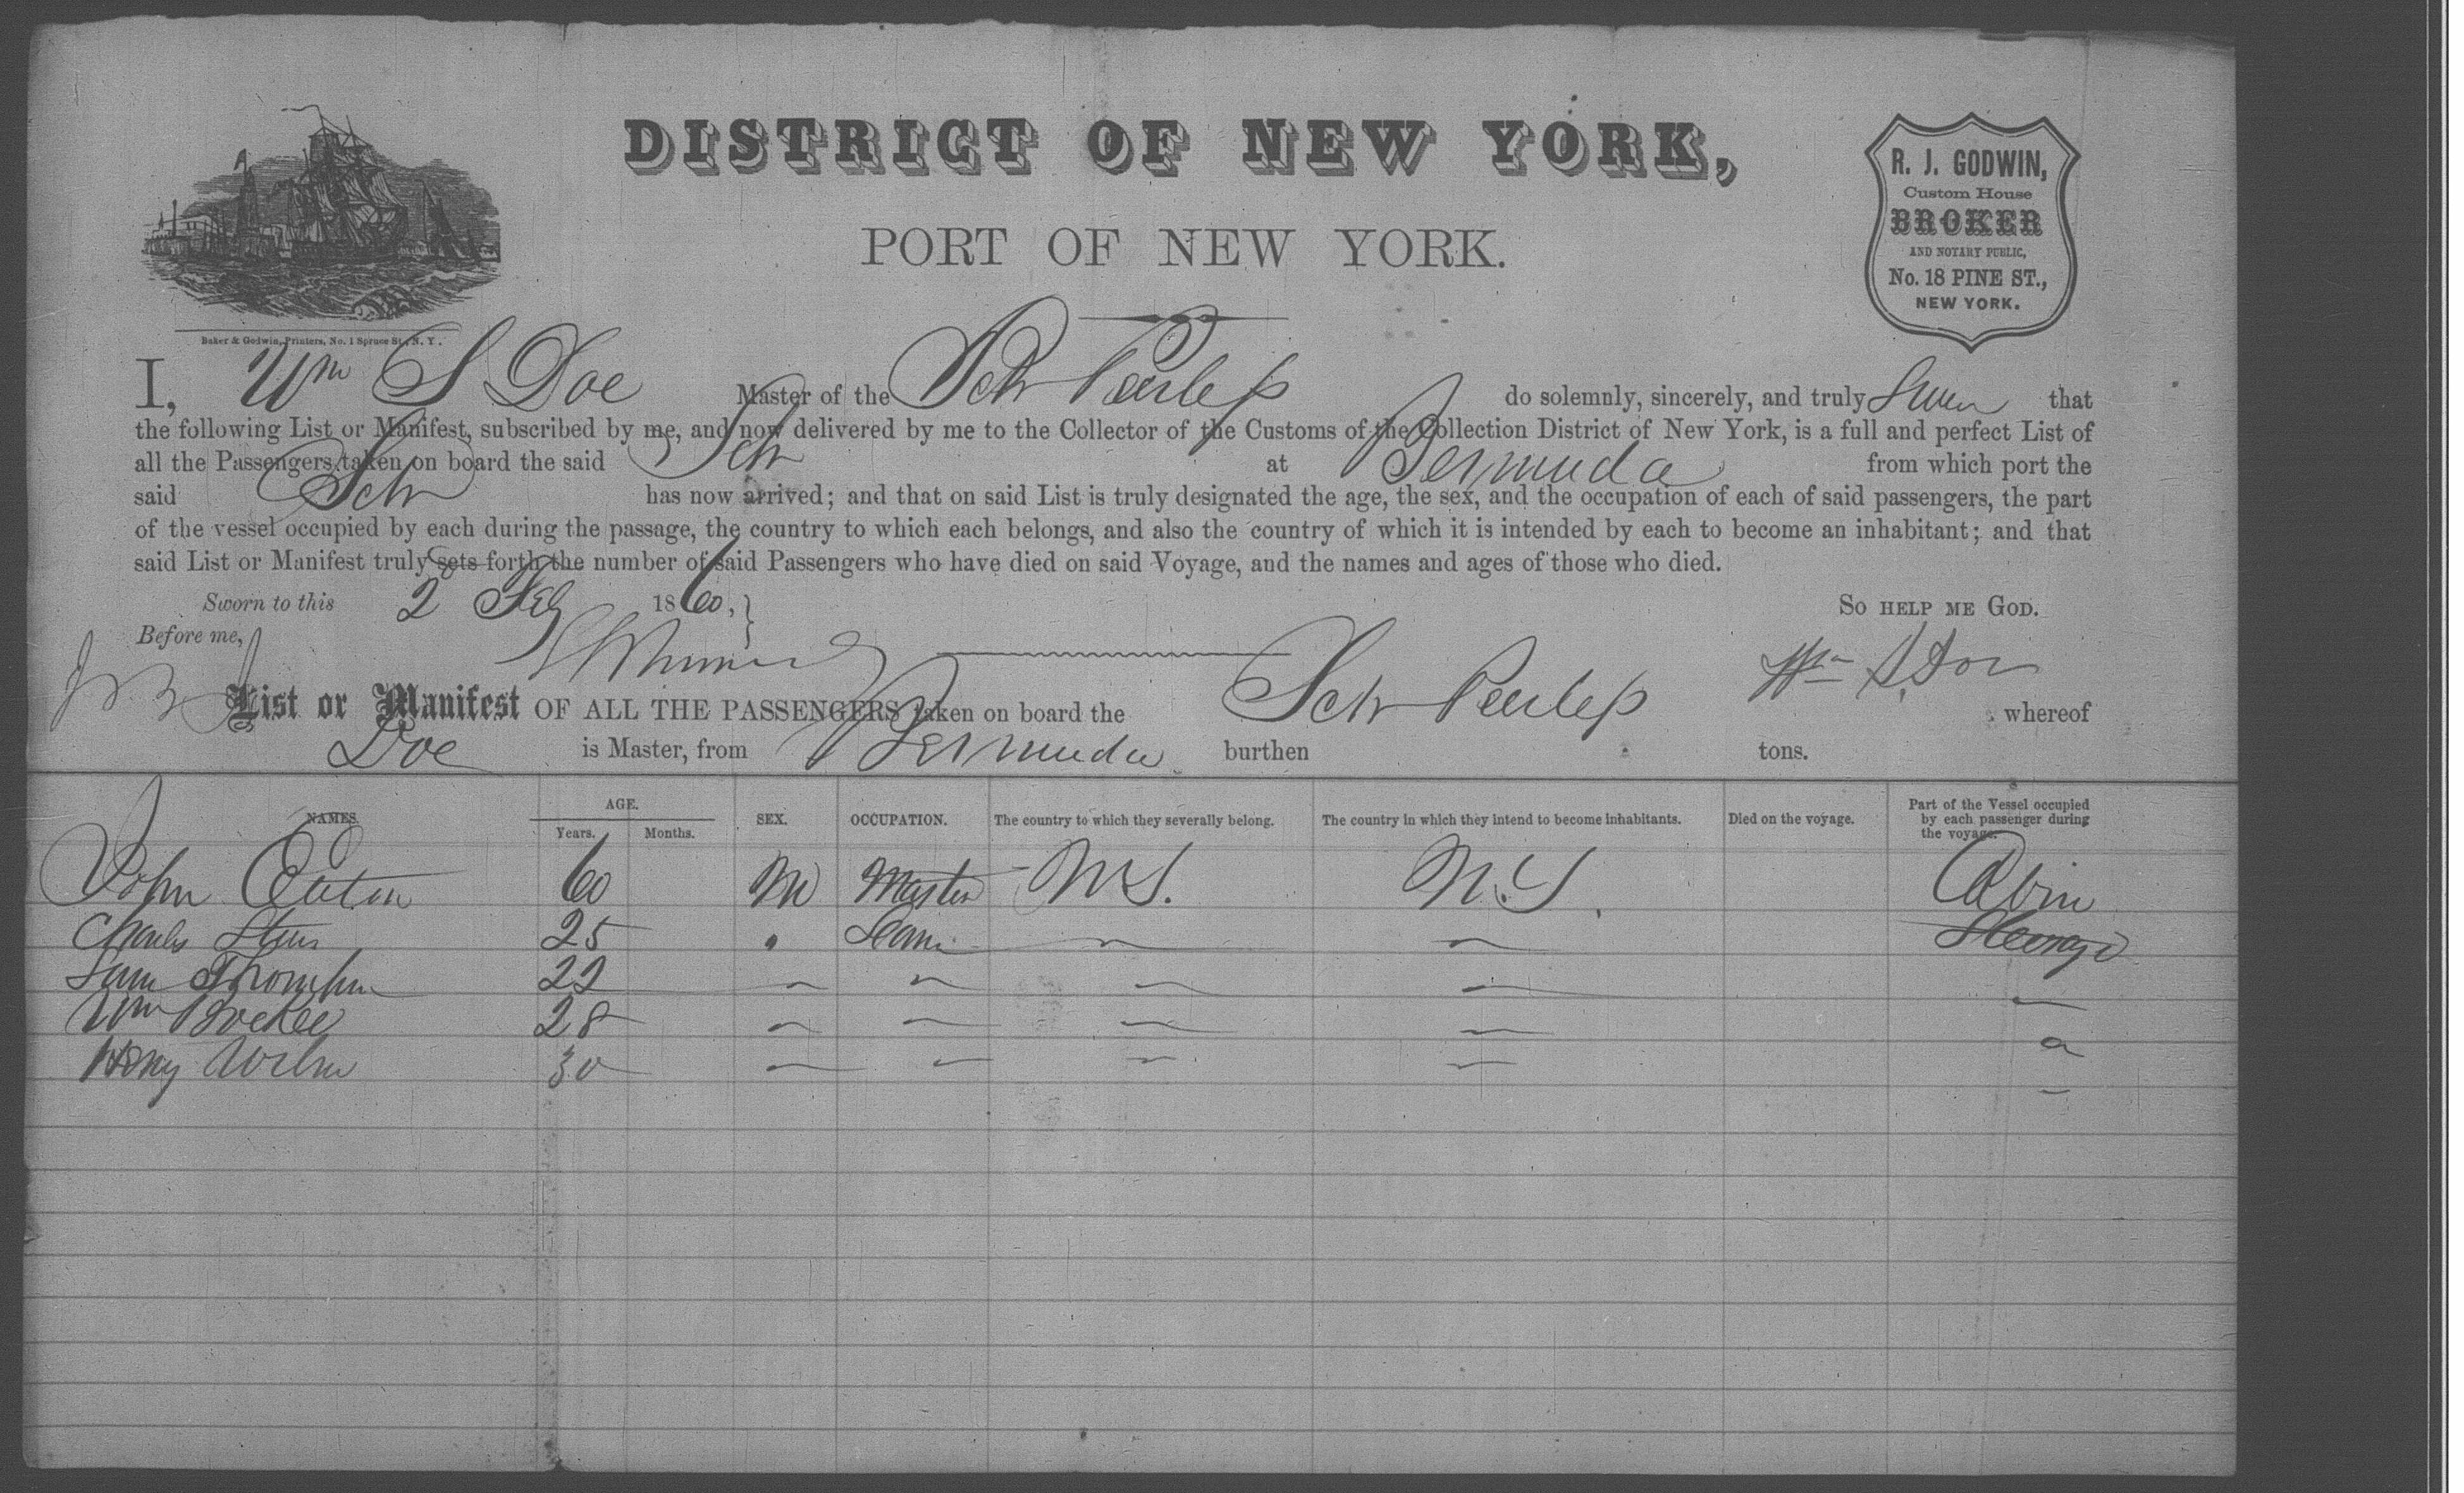 DISTRICT OF NEW YORK,
PORT OF NEW YORK.
R. J. GODWIN,
Custom House
BROKER
AND NOTARY PUBLIC,
No. 18 PINE ST.,
NEW YORK.
Baker & Godwin, Printers, No. 1 Spruce St., N. Y.
I, Wm S Doe Master of the Schr do solemnly, sincerely, and truly that
the following List or Manifest, subscribed by me, and now delivered by me to the Collector of the Customs of the Collection District of New York, is a full and perfect List of
all the Passengers taken on board the said Schr at Bermuda from which port the
said Schr has now arrived; and that on said List is truly designated the age, the sex, and the occupation of each of said passengers, the part
of the vessel occupied by each during the passage, the country to which each belongs, and also the country of which it is intended by each to become an inhabitant; and that
said List or Manifest truly sets forth the number of said Passengers who have died on said Voyage, and the names and ages of those who died.
Sworn to this 2 Feb 1860, So help me God.
Before me, Wm S. Doe
List or Manifest OF ALL THE PASSENGERS taken on board the Schr whereof
Doe is Master, from Bermuda burthen tons.
NAMES. AGE. SEX. OCCUPATION. The country to which they severally belong. The country in which they intend to become inhabitants. Died on the voyage. Part of the Vessel occupied by each passenger during the voyage.
Years. Months.
John Eaton 60 M Master N.S. Cabin
Charles 25 "
Sam Thompson 22 " " " "
Wm 28 " " " "
Henry 30 " " " "